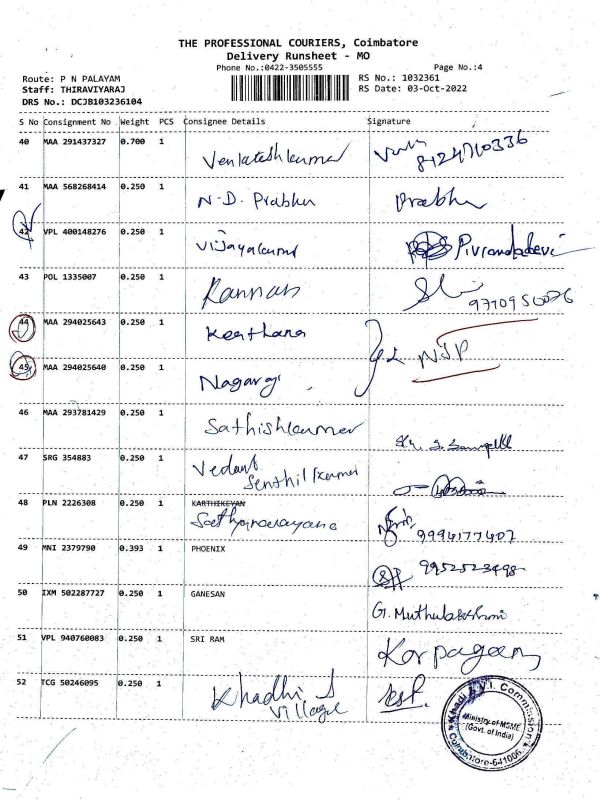 THE PROFESSIONAL COURIERS, Coimbatore
Delivery Runsheet - MO
Phone No.:0422-3505555 Page No.:4
Route: P N PALAYAM RS No.: 1032361
Staff: THIRAVIYARAJ RS Date: 03-Oct-2022
DRS No.: DCJB103236104
S No Consignment No Weight PCS Consignee Details Signature
40 MAA 291437327 0.700 1 Venkateshkumar 8124710336
41 MAA 568268414 0.250 1 N.D. Prabhu Prabhu
42 VPL 400148276 0.250 1 Vijayakumar
43 POL 1335007 0.250 1 Kannan
44 MAA 294025643 0.250 1 Keerthana
45 MAA 294025640 0.250 1 Nagaraj NJP
46 MAA 293781429 0.250 1 Sathishkumar
47 SRG 354883 0.250 1 Vedant
Senthil Kumar
48 PLN 2226308 0.250 1 KARTHIKEYAN
Sathyanarayana 9994177407
49 MNI 2379790 0.393 1 PHOENIX 9952523498
50 IXM 502287727 0.250 1 GANESAN G. Muthulakshmi
51 VPL 940760083 0.250 1 SRI RAM Karpagam
52 TCG 50246095 0.250 1 Khadhi &
Village
Khadi & V.I. Commission
Ministry of MSME
(Govt. of India)
Coimbatore-641006